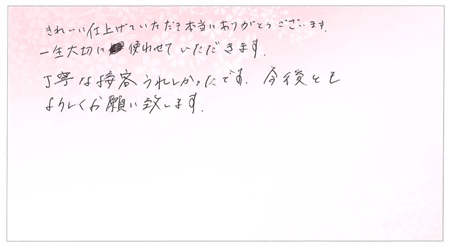 きれいに仕上げていただき本当にありがとうございます.
一生大切に使わせていただきます.
丁寧な接客うれしかったです. 今後とも
よろしくお願い致します.